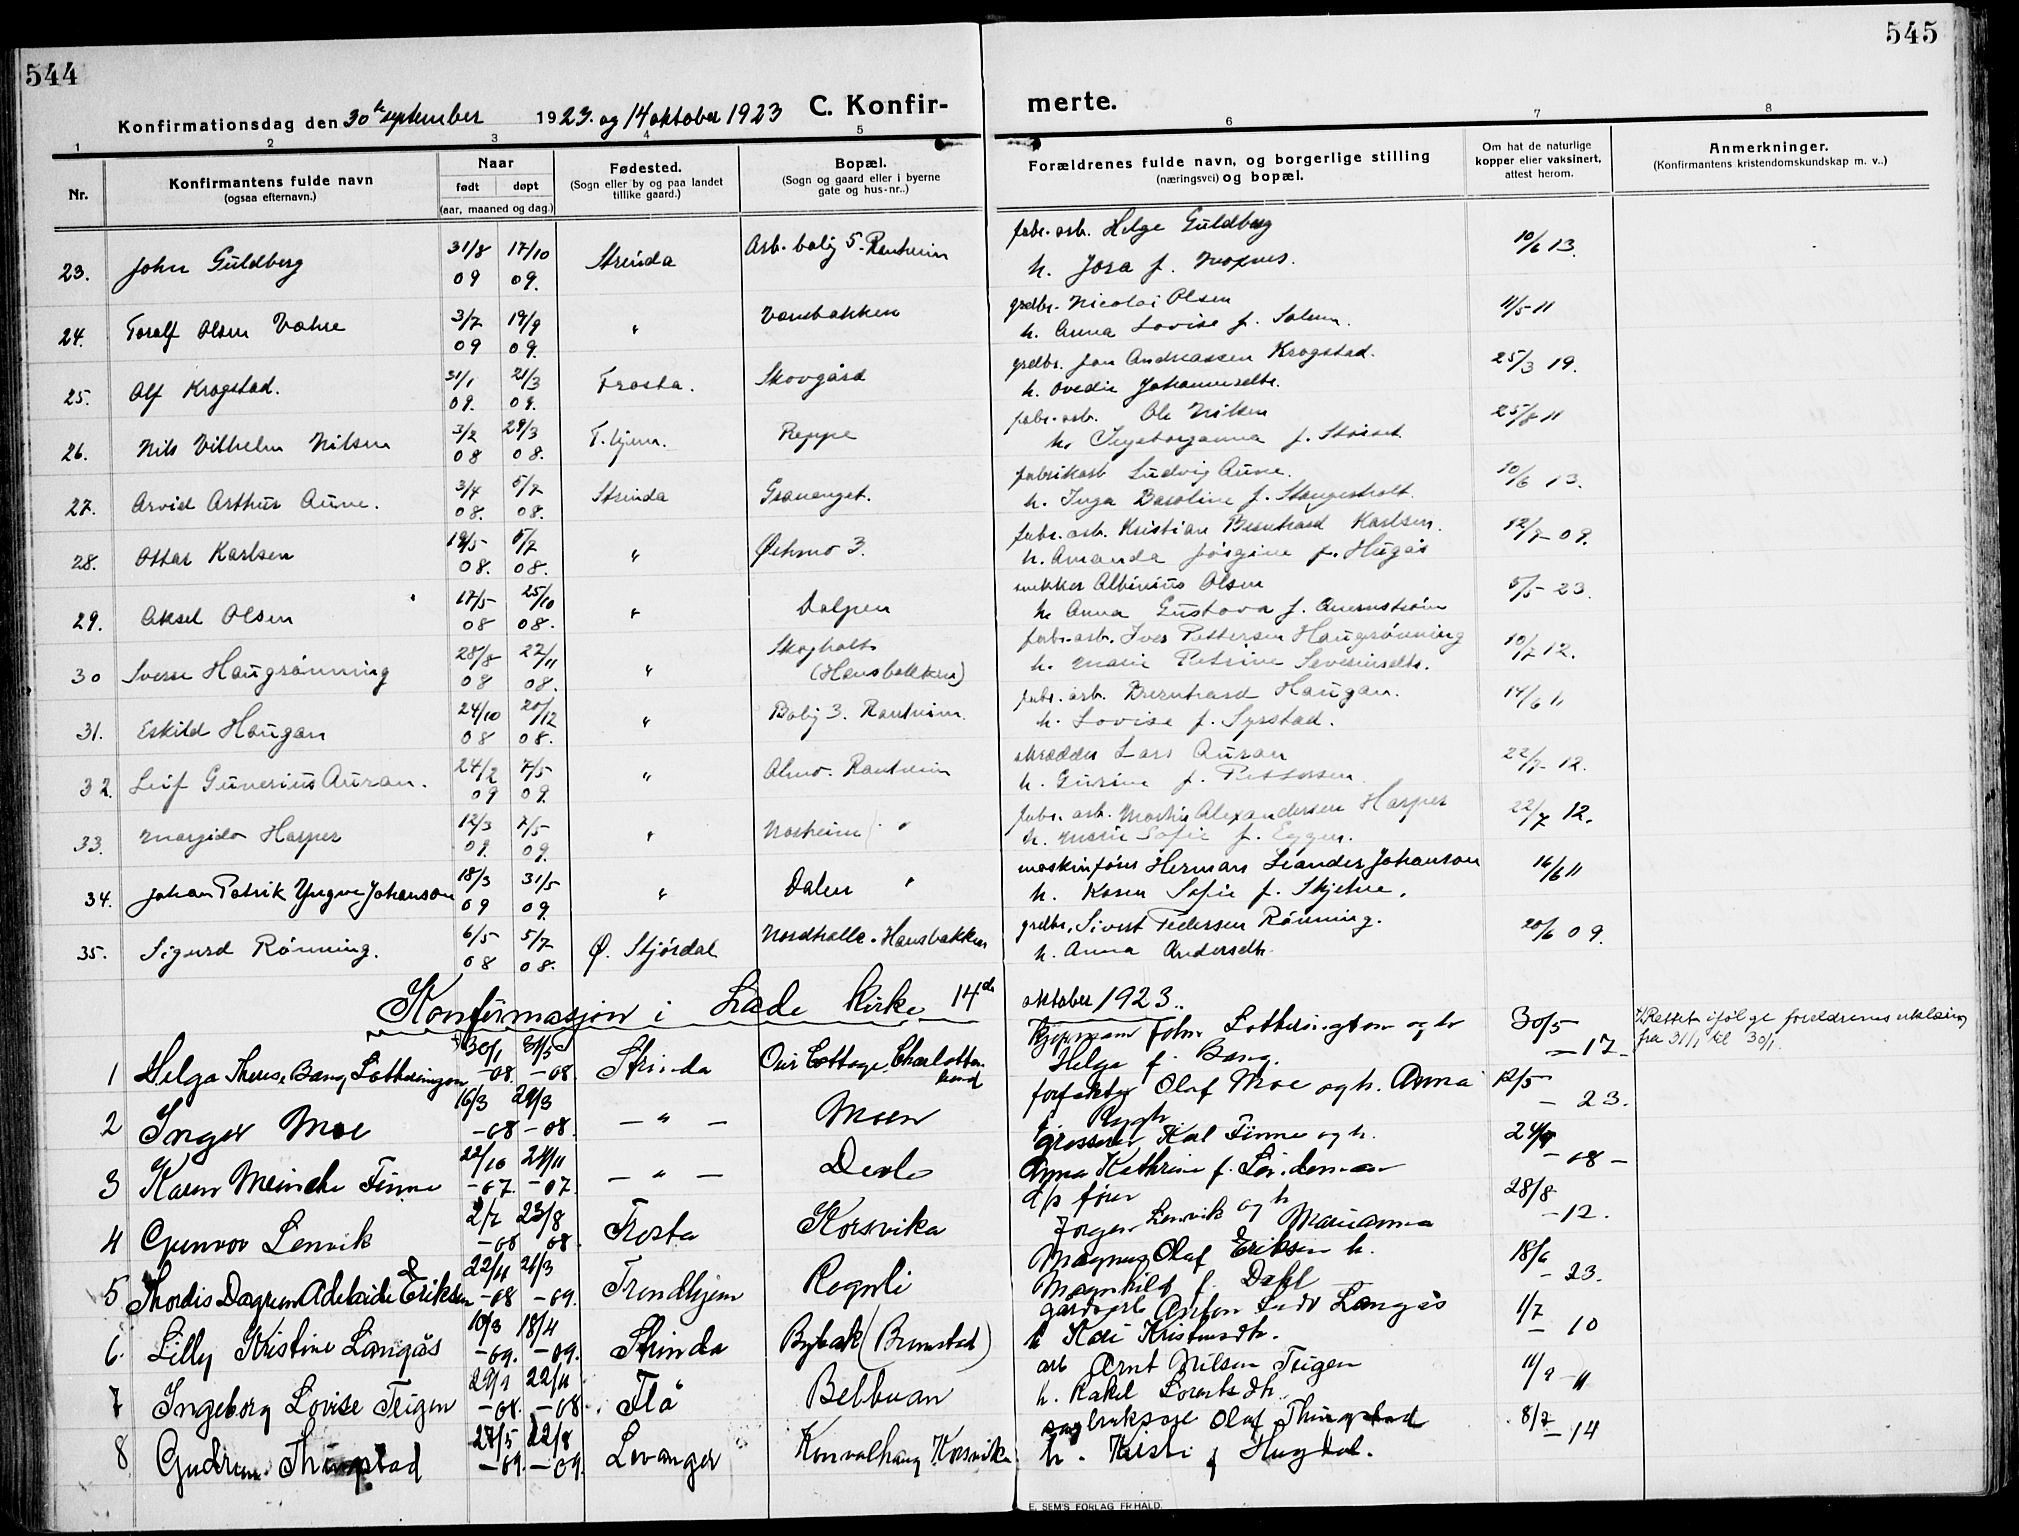 544
545
Konfirmationsdag den 30te september 1923. og 14 oktober 1923 C. Konfir- merte.
1 2 3 4 5 6 7 8
Nr.
Konfirmantens fulde navn
(ogsaa efternavn.)
Naar
født døpt
(aar, maaned og dag.)
Fødested.
(Sogn eller by og paa landet
tillike gaard.)
Bopæl.
(Sogn og gaard eller i byerne
gate og hus-nr..)
Forældrenes fulde navn, og borgerlige stilling
(næringsvei) og bopæl.
Om hat de naturlige
kopper eller vaksinert,
attest herom.
Anmerkninger.
(Konfirmantens kristendomskundskap m. v..)
23. John Guldberg 31/8 09 17/10 09. Strinda Arb. bolig 5. Ranheim fabr. arb. Helge Guldberg 10/6 13.
h. Josa f. Moxnes.
24. Toralf Olsen Væhre 3/7 09 19/9 09. " Værebakken grdbr. Nicolai Olsen 11/5 11
h. Anna Lovise f. Solem.
25. Alf Krogstad. 31/1 09. 21/3 09. Frosta. Skovgård grdbr. Jon Andreassen Krogstad. 25/3 19.
h. Ovedie Johannesdtr.
26. Nils Vilhelm Nilsen 3/2 08 29/3 08. T.hjem. Reppe fabr. arb. Ole Nilsen 25/8 11
h. Ingeborganna f. Støiset
27. Arvid Arthur Aune. 3/4 08. 5/7 08. Strinda Granenget. fabrikarb Ludvig Aune. 10/6 13.
h. Inga Basoline f. Stangesholt.
28. Ottar Karlsen 19/5 08. 5/7 08. " Øihmo 3. fabr. arb. Kristian Bernhard Karlsen. 12/9 09.
h. Amanda Jørgine f. Hugås
29. Aksel Olsen 17/5 08 25/10 08. " Dalpen snekker Albinius Olsen 5/5 23.
h. Anna Gustava f.
30 Sverre Haugrønning 28/8 08 22/11 08. " Skogholt fabr. arb. Iver Pettersen Haugrønning 10/7 12.
(Hansbakken) h. Marie Petrine Severinsdtr.
31. Eskild Haugan 24/10 08 20/12 08. " Bolig 3. Ranheim. fabr. arb. Bernhard Haugan. 14/6 11
h. Lovise f. Syrstad.
32. Leif Gunerius Auran. 24/2 09 7/5 09. " Olmo. Ranheim skrædder Lars Auran 22/7 12.
h. Gurine f. Pettersen.
33. Margido Harper 12/3 09. 7/5 09. " Norheim " fabr. arb. Martin Alexandersen Harper 22/7 12.
h. Marie Sofie f. Eggen.
34. Johan Patrik Yngve Johanson 18/3 09 31/5 09. " Dalen " maskinfører Herman Leander Johanson 16/6 11
h. Karen Sofie f. Skjetne.
35. Sigurd Rönning. 6/5 08 5/7 08. Ø. Stjördal Nordhalla. Hansbakken grdbr. Sivert Pedersen Rönning. 20/6 09.
h. Anna Andersdtr.
Konfirmasjon i Lade kirke 14de oktober 1923.
1 Helga Therese Bang Lotherington 30/1 -08. 31/5 -08. Strinda Our Cottage, Charlottenlund kjøpmann John Lotherington og h 30/5 -17- Rettet ifølge foreldrenes erklæring
Helga f. Bang. fra 31/1 til 30/1.
2 Inger Moe 16/3 -08 29/3 -08. - " - Moen forfatter Olaf Moe og h. Anna 12/5 - 23.
f. Rygh
3 Karen Meincke Finne 22/10 -07. 24/11 -07. - " - Devle grosserer Karl Finne og h. 24/9 -08-
Anna Kathrine f. Lindeman
4 Gunvor Lenvik 2/7 -08 23/8 08. Frosta Korsvika d/s fører 28/8 -12.
Jørgen Lenvik og h Marianna
5 Thordis Dagrun Adelaide Eriksen 22/11 -08 21/3 -09. Trondhjem Rognli Magnus Olaf Eriksen h. 18/6 - 23.
Magnhild f. Dahl
6. Lilly Kristine Langås 10/3 -09. 18/4 -09. Strinda Bybak (Brunstad) gardsarb Anton Ludv Langås 1/7 - 10
h Kari Kristensdtr.
7 Ingeborg Lovise Teigen 29/9 -08. 22/11 -08. Flå Belbuan arb Arnt Nilsen Teigen 11/9 - 11
h. Rakel Lorentsdtr.
8 Gudrun Thingstad 27/5 -09. 22/8 -09. Levanger Konvalhaug Korsvika Olaf Thingstad 8/7 -14
h. Kirsti f Hugdal.
E. SEM'S FORLAG FR HALD.